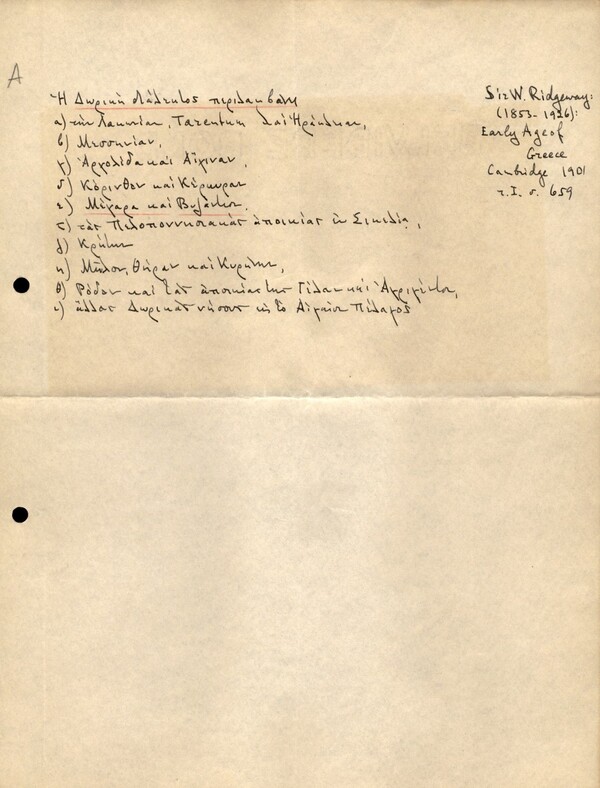 A
Ἡ Δωρικὴ διάλεκτος περιλαμβάνει
α) τὴν Λακωνίαν, Tarentum καὶ Ἡράκλειαν,
β) Μεσσηνίαν,
γ) Ἀργολίδα καὶ Αἴγιναν,
δ) Κόρινθον καὶ Κέρκυραν
ε) Μέγαρα καὶ Βυζάντιον.
ς) τὰς Πελοποννησιακὰς ἀποικίας ἐν Σικελίᾳ,
ζ) Κρήτην
η) Μῆλον, Θήραν καὶ Κυρήνην,
θ) Ρόδον καὶ τὰς ἀποικίας της Γέλαν καὶ Ἀκράγαντα,
ι) ἄλλας Δωρικὰς νήσους εἰς τὸ Αἰγαῖον Πέλαγος
Sir W. Ridgeway:
(1853-1926):
Early Age of
Greece
Cambridge 1901
τ. I. σ. 659